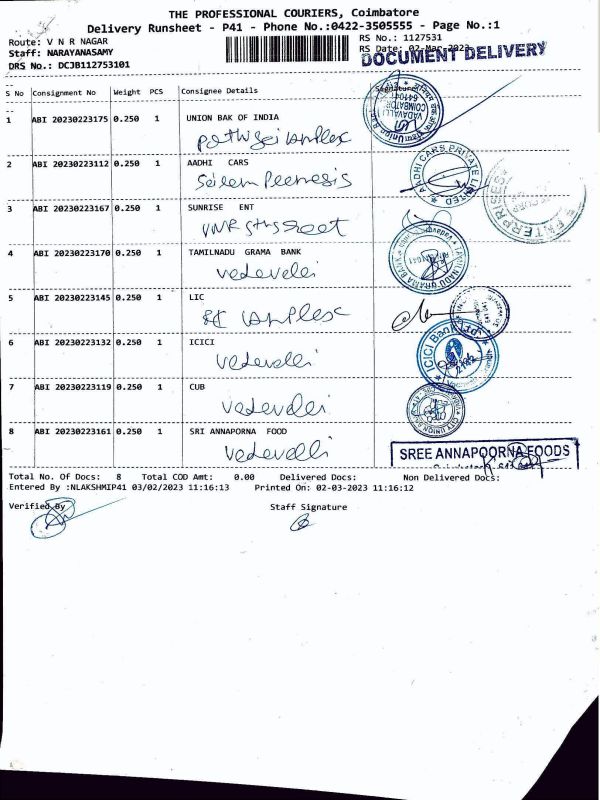 THE PROFESSIONAL COURIERS, Coimbatore
Delivery Runsheet - P41 - Phone No.:0422-3505555 - Page No.:1
Route: V N R NAGAR
RS No.: 1127531
Staff: NARAYANASAMY
RS Date: 02-Mar-2023
DOCUMENT DELIVERY
DRS No.: DCJB112753101
S No Consignment No Weight PCS Consignee Details Signature
1 ABI 20230223175 0.250 1 UNION BAK OF INDIA
2 ABI 20230223112 0.250 1 AADHI CARS
AADHI CARS PRIVATE LIMITED
3 ABI 20230223167 0.250 1 SUNRISE ENT
VNR 5th street
ENTERPRISES
4 ABI 20230223170 0.250 1 TAMILNADU GRAMA BANK
vedevelli
TAMIL NADU GRAMA BANK
5 ABI 20230223145 0.250 1 LIC
complex
6 ABI 20230223132 0.250 1 ICICI
vedevalli
ICICI Bank Ltd
7 ABI 20230223119 0.250 1 CUB
vedevalli
8 ABI 20230223161 0.250 1 SRI ANNAPORNA FOOD
vedevalli
SREE ANNAPOORNA FOODS
Total No. Of Docs: 8 Total COD Amt: 0.00 Delivered Docs: Non Delivered Docs:
Entered By :NLAKSHMIP41 03/02/2023 11:16:13 Printed On: 02-03-2023 11:16:12
Verified By Staff Signature